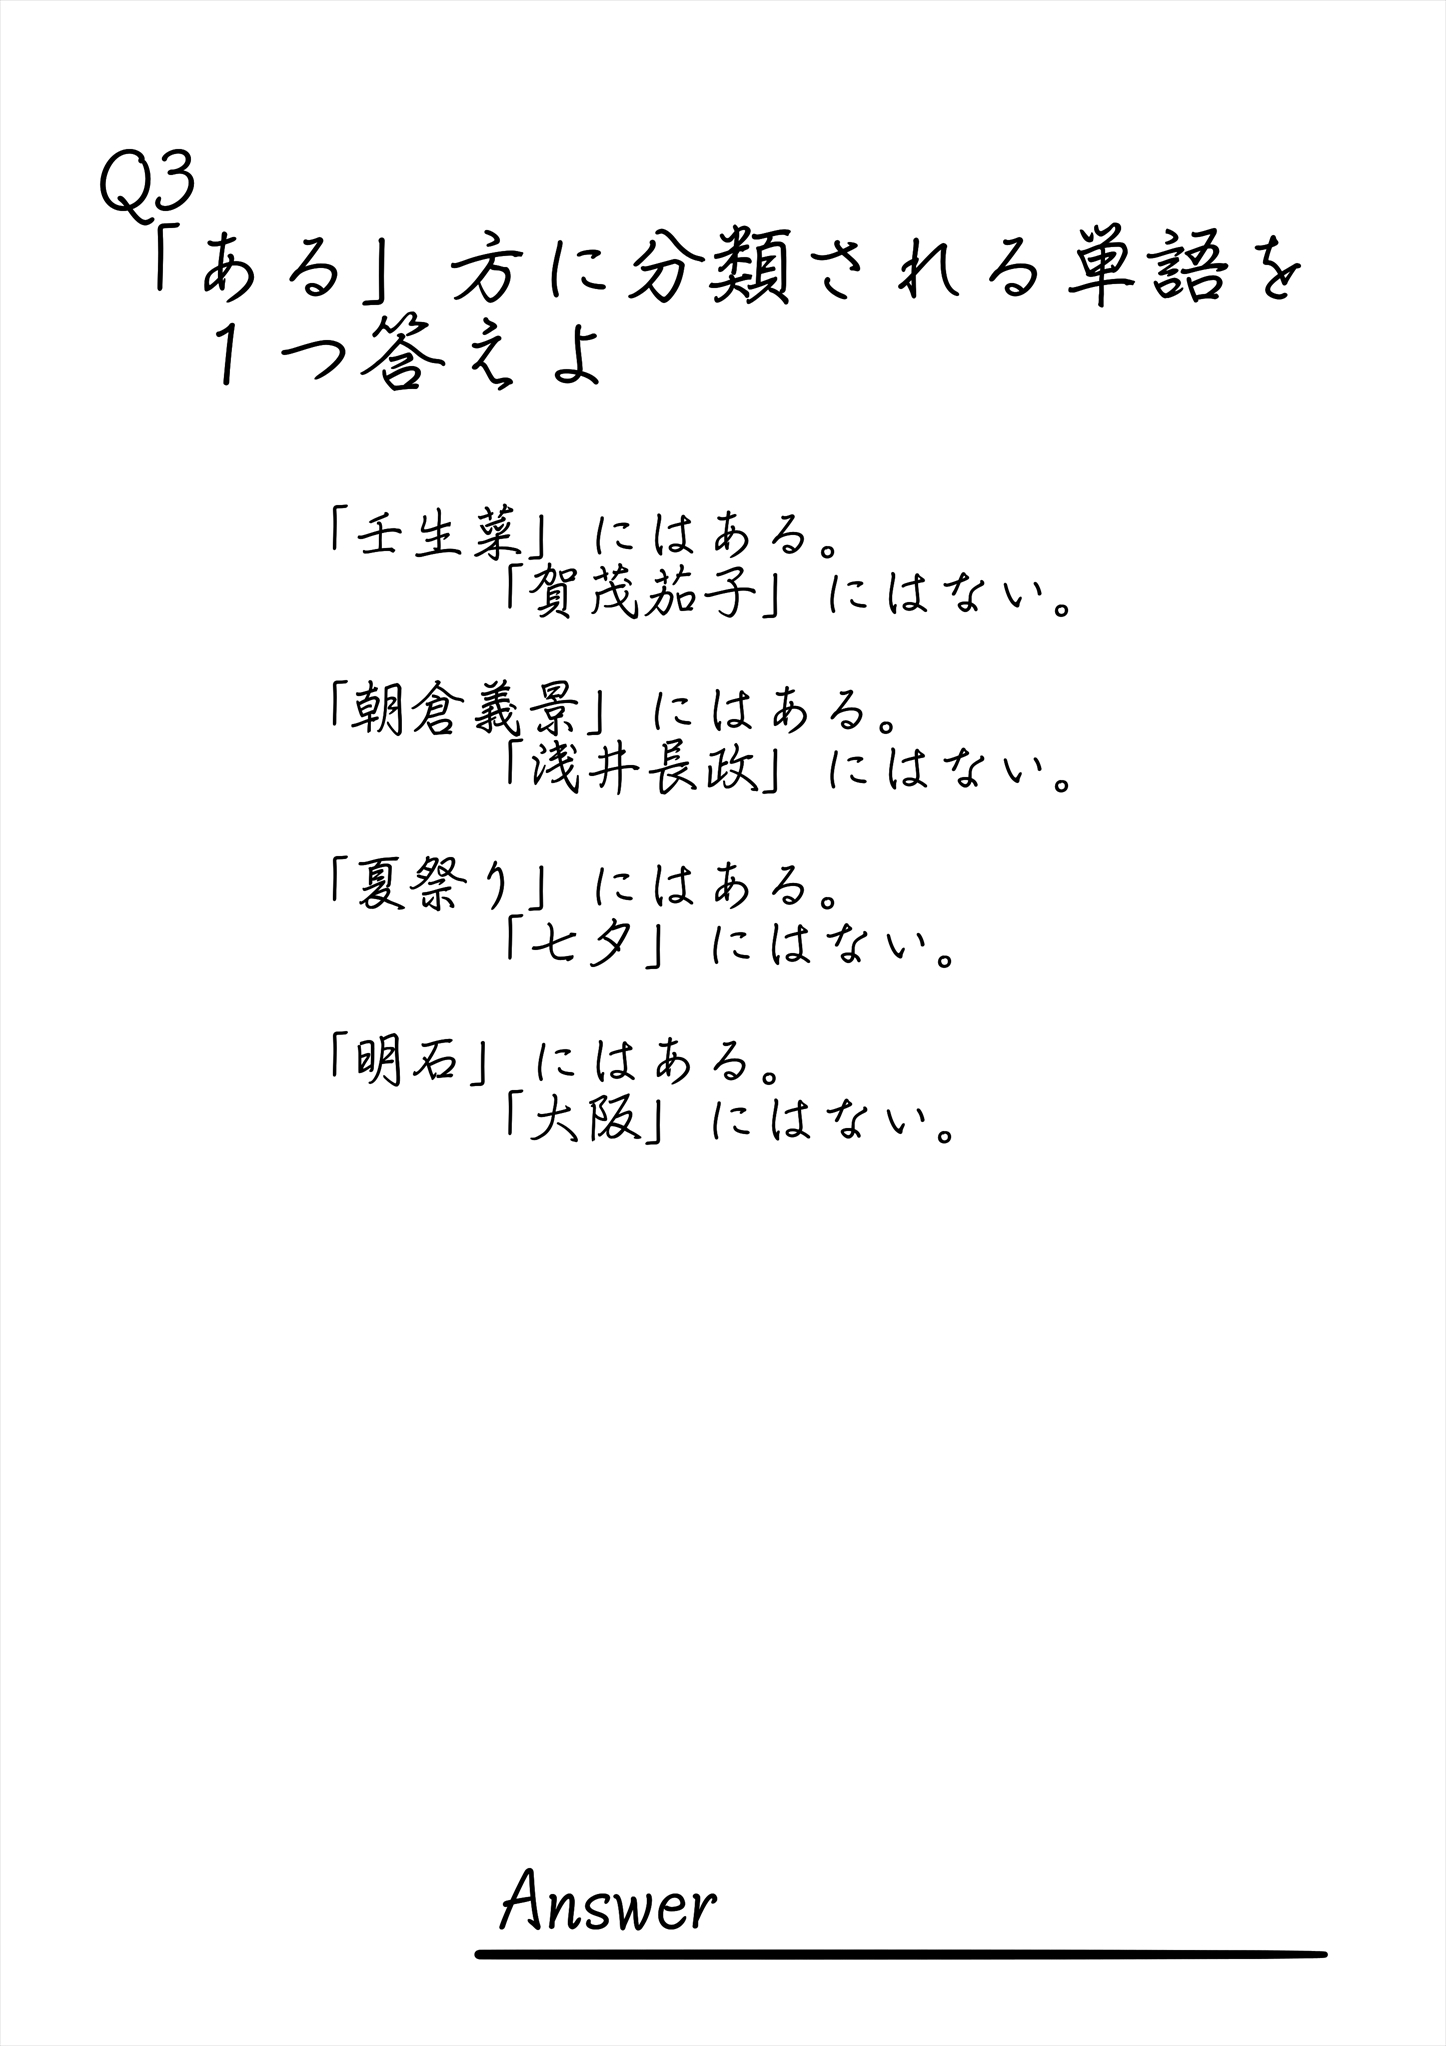 Q3
「ある」方に分類される単語を
1つ答えよ
「壬生菜」にはある。
「賀茂茄子」にはない。
「朝倉義景」にはある。
「浅井長政」にはない。
「夏祭り」にはある。
「七夕」にはない。
「明石」にはある。
「大阪」にはない。
Answer